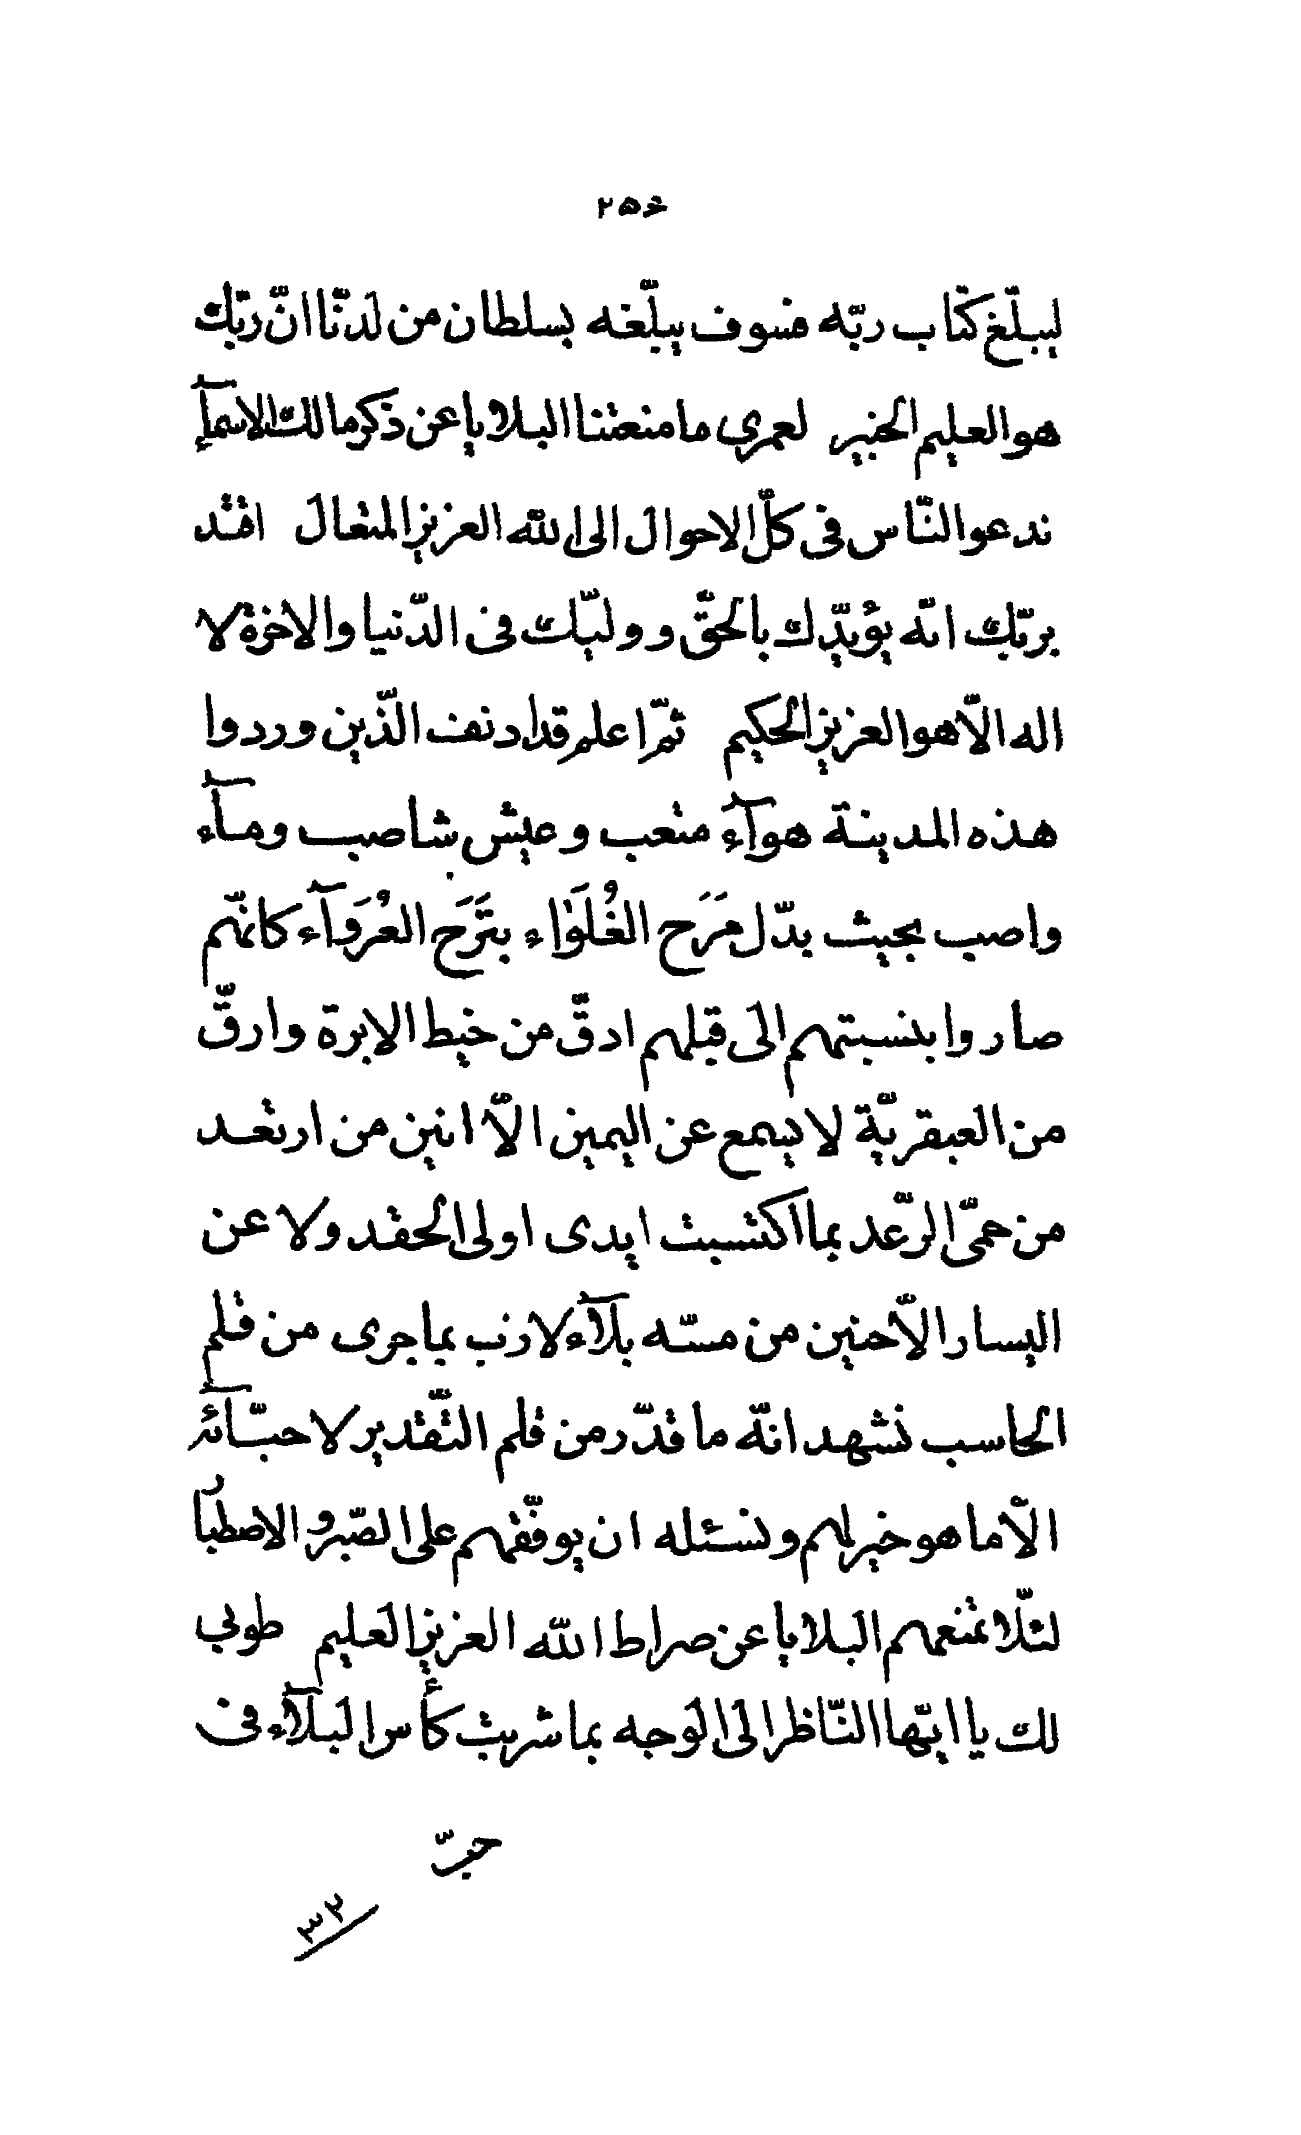 ٢٥٤
ليبلّغ كتاب ربّه فسوف يبلّغه بسلطان من لدنّا انّ ربّك
هو العليم الخبير لعمري ما منعتنا البلايا عن ذكر مالك الاسمآء
ندعو النّاس فی كلّ الاحوال الی الله العزيز المتعال اقتد
بربّك انّه يؤيّدك بالحقّ و وليّك فی الدّنيا والاخرة لا
اله الّا هو العزيز الحكيم ثمّ اعلم قد ادنف الّذين وردوا
هذه المدينة هوآء متعب و عيش شاصب و مآء
واصب بحيث بدّل مَرَح الغُلَوَاء بتَرَح العُرَوَآء كانّهم
صاروا بنسبتهم الی قبلهم ادقّ من خيط الابرة وارقّ
من العبقريّة لا يسمع عن اليمين الّا انين من ارتعد
من حمّی الرّعد بما اكتسبت ايدی اولی الحقد و لا عن
اليسار الّا حنين من مسّه بلآء لازب بما جری من قلم
الحاسب نشهد انّه ما قدّر من قلم التّقدير لاحبّائه
الّا ما هو خير لهم و نسئله ان يوفّقهم علی الصّبر و الاصطبار
لئلّا تمنعهم البلايا عن صراط الله العزيز العليم طوبی
لك يا ايّها النّاظر الی الوجه بما شربت كأس البلآء فی
حبّ
٣٢